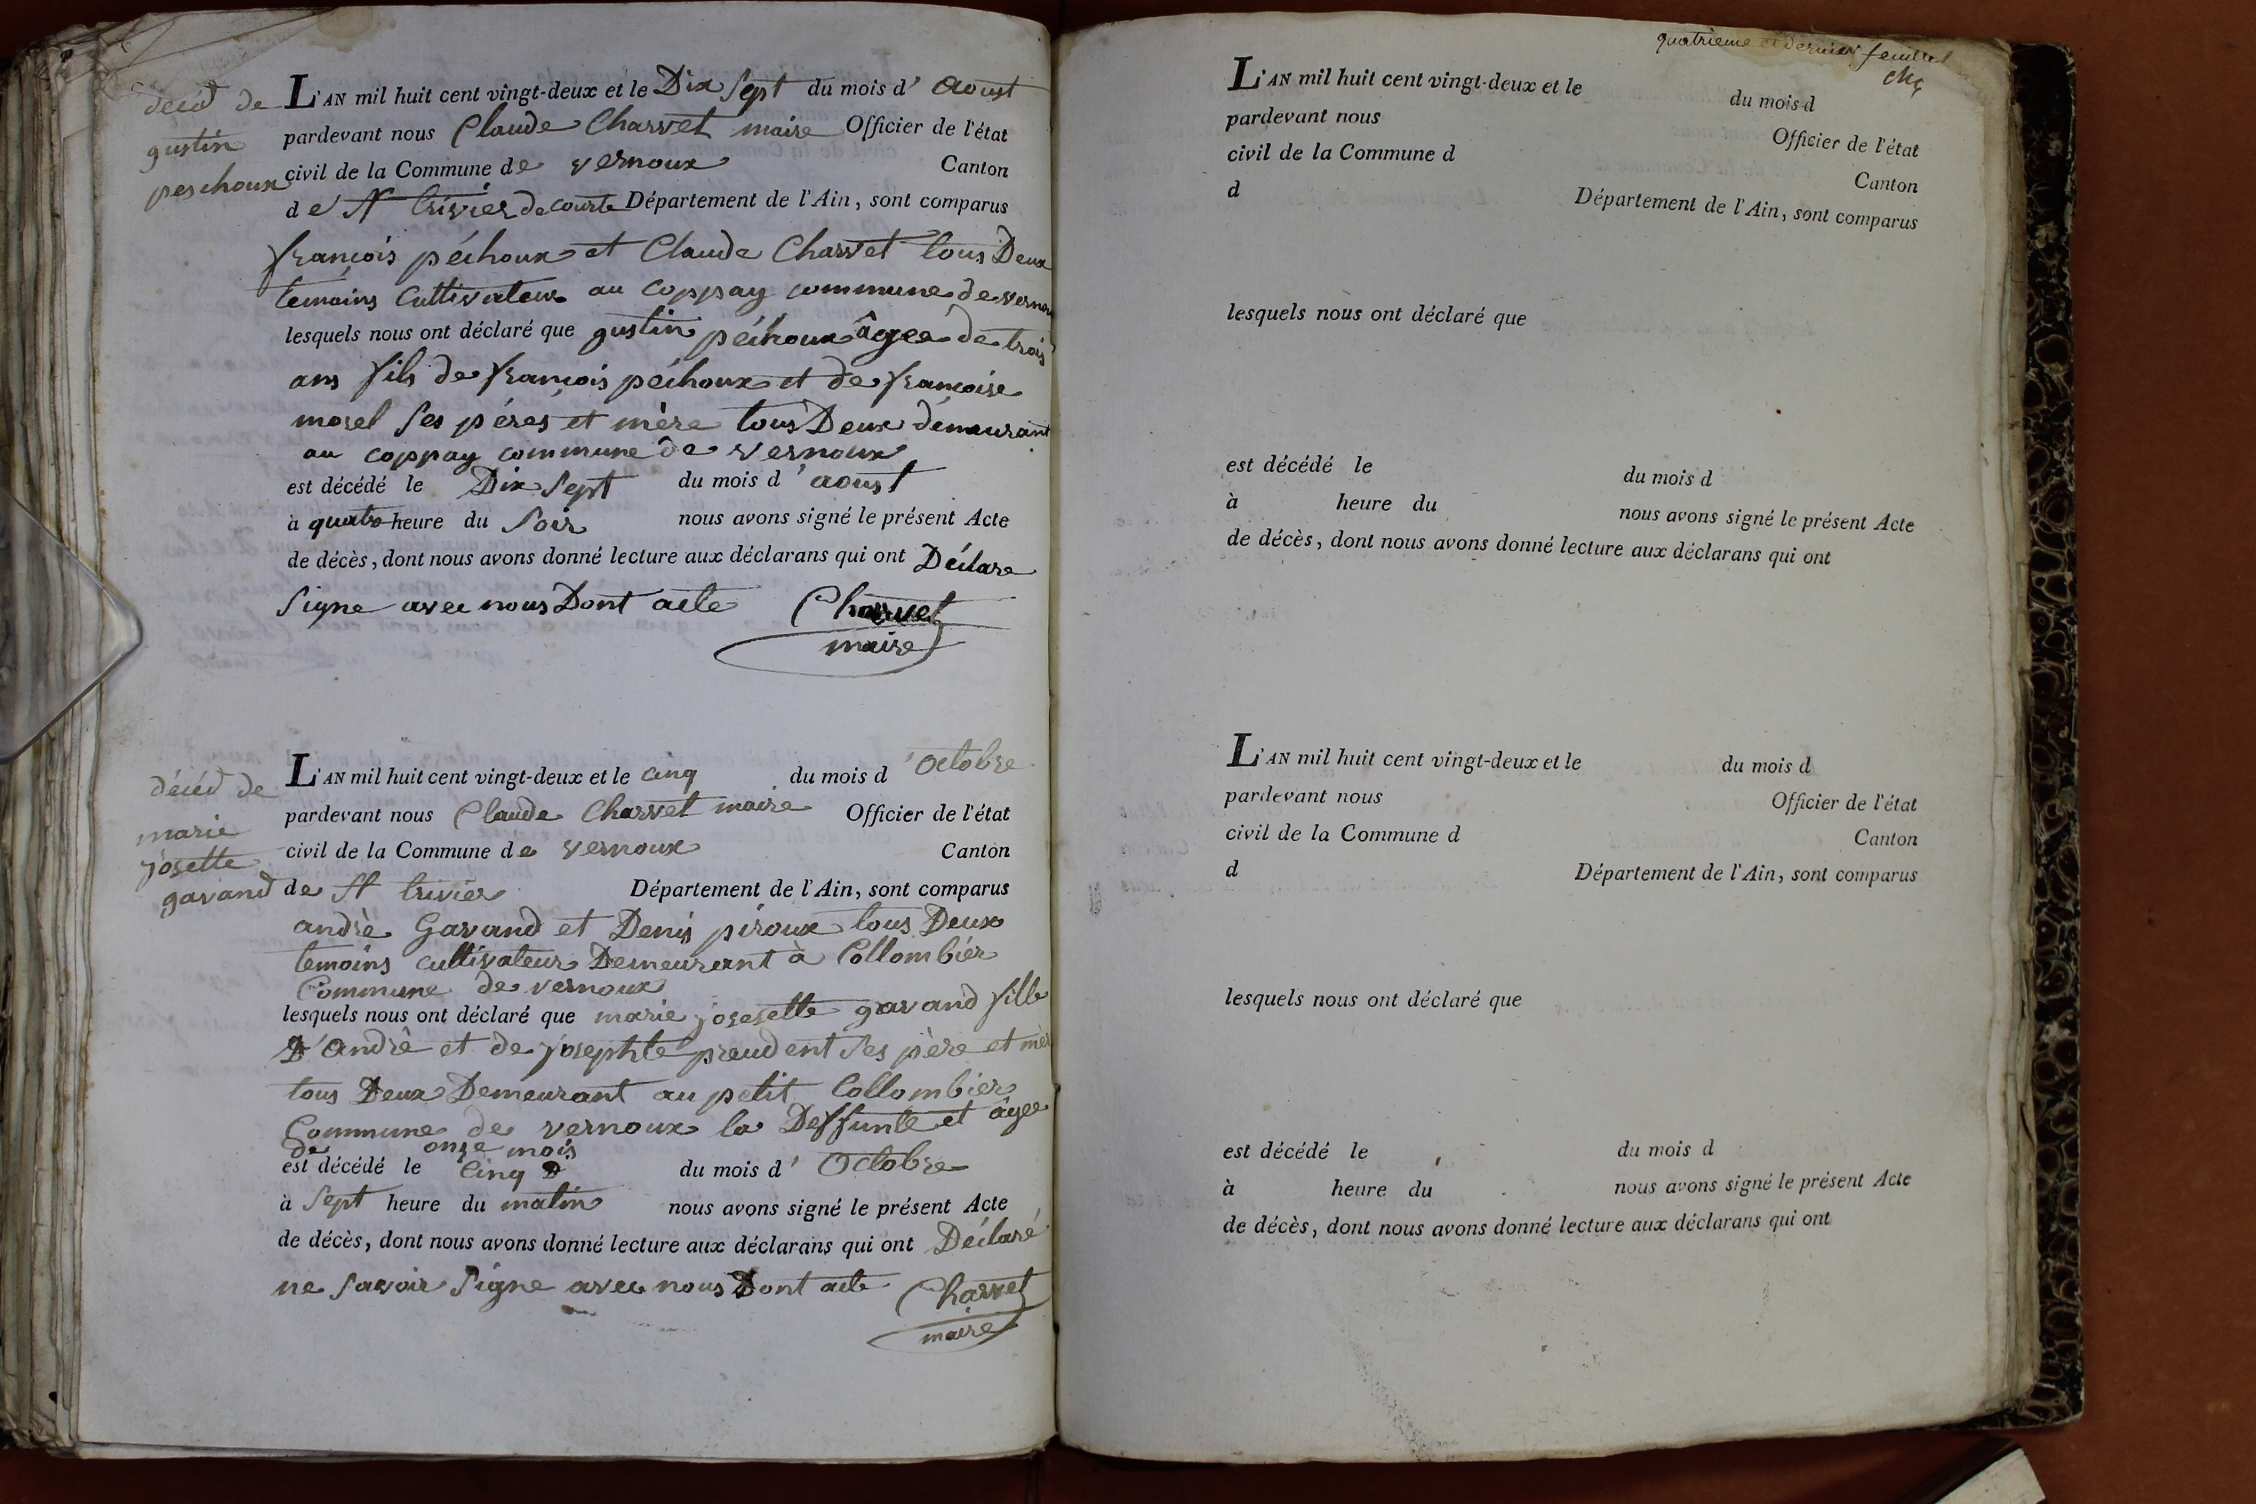 décéd de
gustin
peschoux
L'AN mil huit cent vingt-deux et le Dix Sept du mois d' aoust
pardevant nous Claude Charvet maire Officier de l'état
civil de la Commune de vernoux Canton
de St trivier de courte Département de l'Ain, sont comparus
françois péchoux et Claude Charvet tous Deux
temoins Cultivateur au coppay commune de verno
lesquels nous ont déclaré que gustin péchoux âgee de trois
ans fils de françois péchoux et de francoise
morel Ses péres et mère tous Deux démeurant
au coppay commune de vernoux
est décédé le Dix Sept du mois d' aoust
à quatre heure du Soir nous avons signé le présent Acte
de décès, dont nous avons donné lecture aux déclarans qui ont Déclare
Signe avec nous Dont acte Charvet
maire
décéd de
marie
josette
gavand
L'AN mil huit cent vingt-deux et le cinq du mois d 'Octobre
pardevant nous Claude Charvet maire Officier de l'état
civil de la Commune de vernoux Canton
de St trivier Département de l'Ain, sont comparus
andrè Gavand et Denis piroux tous Deux
temoins cultivateur Demeurant à Collombiér
Commune de vernoux
lesquels nous ont déclaré que marie josesette gavand fille
D'andrê et de josephte preudent Ses père et mèr
tous Deux Demeurant au petit Collombier
Commune de vernoux la Deffunte et âgee
de onze mois
est décédé le Cinq du mois d' Octobre
à Sept heure du matin nous avons signé le présent Acte
de décès, dont nous avons donné lecture aux déclarans qui ont Déclaré
ne Savoir Signe avec nous Dont acte Charvet
maire
quatrieme et dernier feuillet
L'AN mil huit cent vingt-deux et le du mois d
pardevant nous Officier de l'état
civil de la Commune d Canton
d Département de l'Ain, sont comparus
lesquels nous ont déclaré que
est décédé le du mois d
à heure du nous avons signé le présent Acte
de décès, dont nous avons donné lecture aux déclarans qui ont
L'AN mil huit cent vingt-deux et le du mois d
pardevant nous Officier de l'état
civil de la Commune d Canton
d Département de l'Ain, sont comparus
lesquels nous ont déclaré que
est décédé le du mois d
à heure du nous avons signé le présent Acte
de décès, dont nous avons donné lecture aux déclarans qui ont